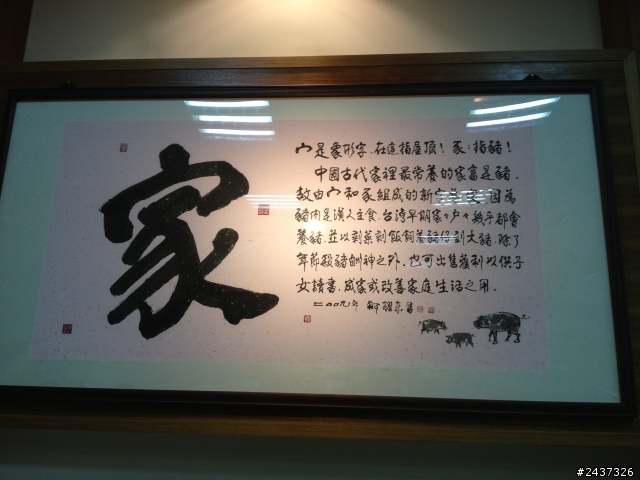 家
宀是象形字,在這指屋頂!豕:指豬!
中國古代家裡最常養的家畜是豬,
故由宀和豕組成的新字為家,因為
豬肉是漢人主食,台灣早期家家戶戶幾乎都會
養豬,並以剩菜剩飯飼養豬仔到大豬,除了
年節殺豬酬神之外,也可出售獲利以供子
女讀書,成家或改善家庭生活之用。
二〇〇九年 東書
#2437326